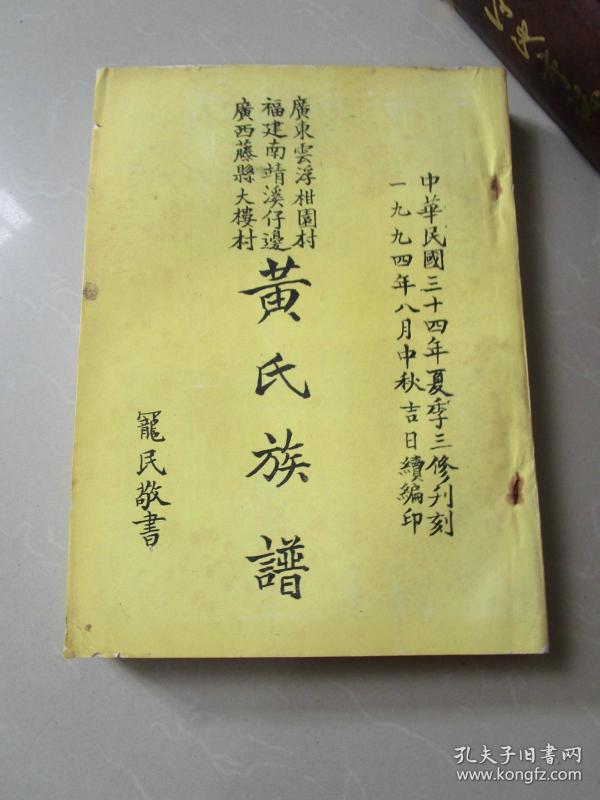 中華民國三十四年夏季三修刋刻
一九九四年八月中秋吉日續編印
廣東雲浮柑園村
福建南靖溪仔邊
廣西藤縣大樓村
黃氏族譜
寵民敬書
孔夫子旧书网
www.kongfz.com